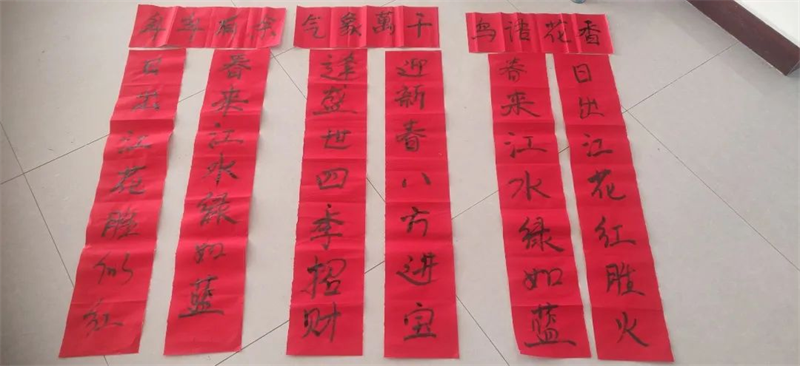 年年有
气象萬千
鸟语花香
日出江花胜似红
春来江水绿如蓝
逢盛世四季招财
迎新春八方进宝
春来江水绿如蓝
日出江花红胜火